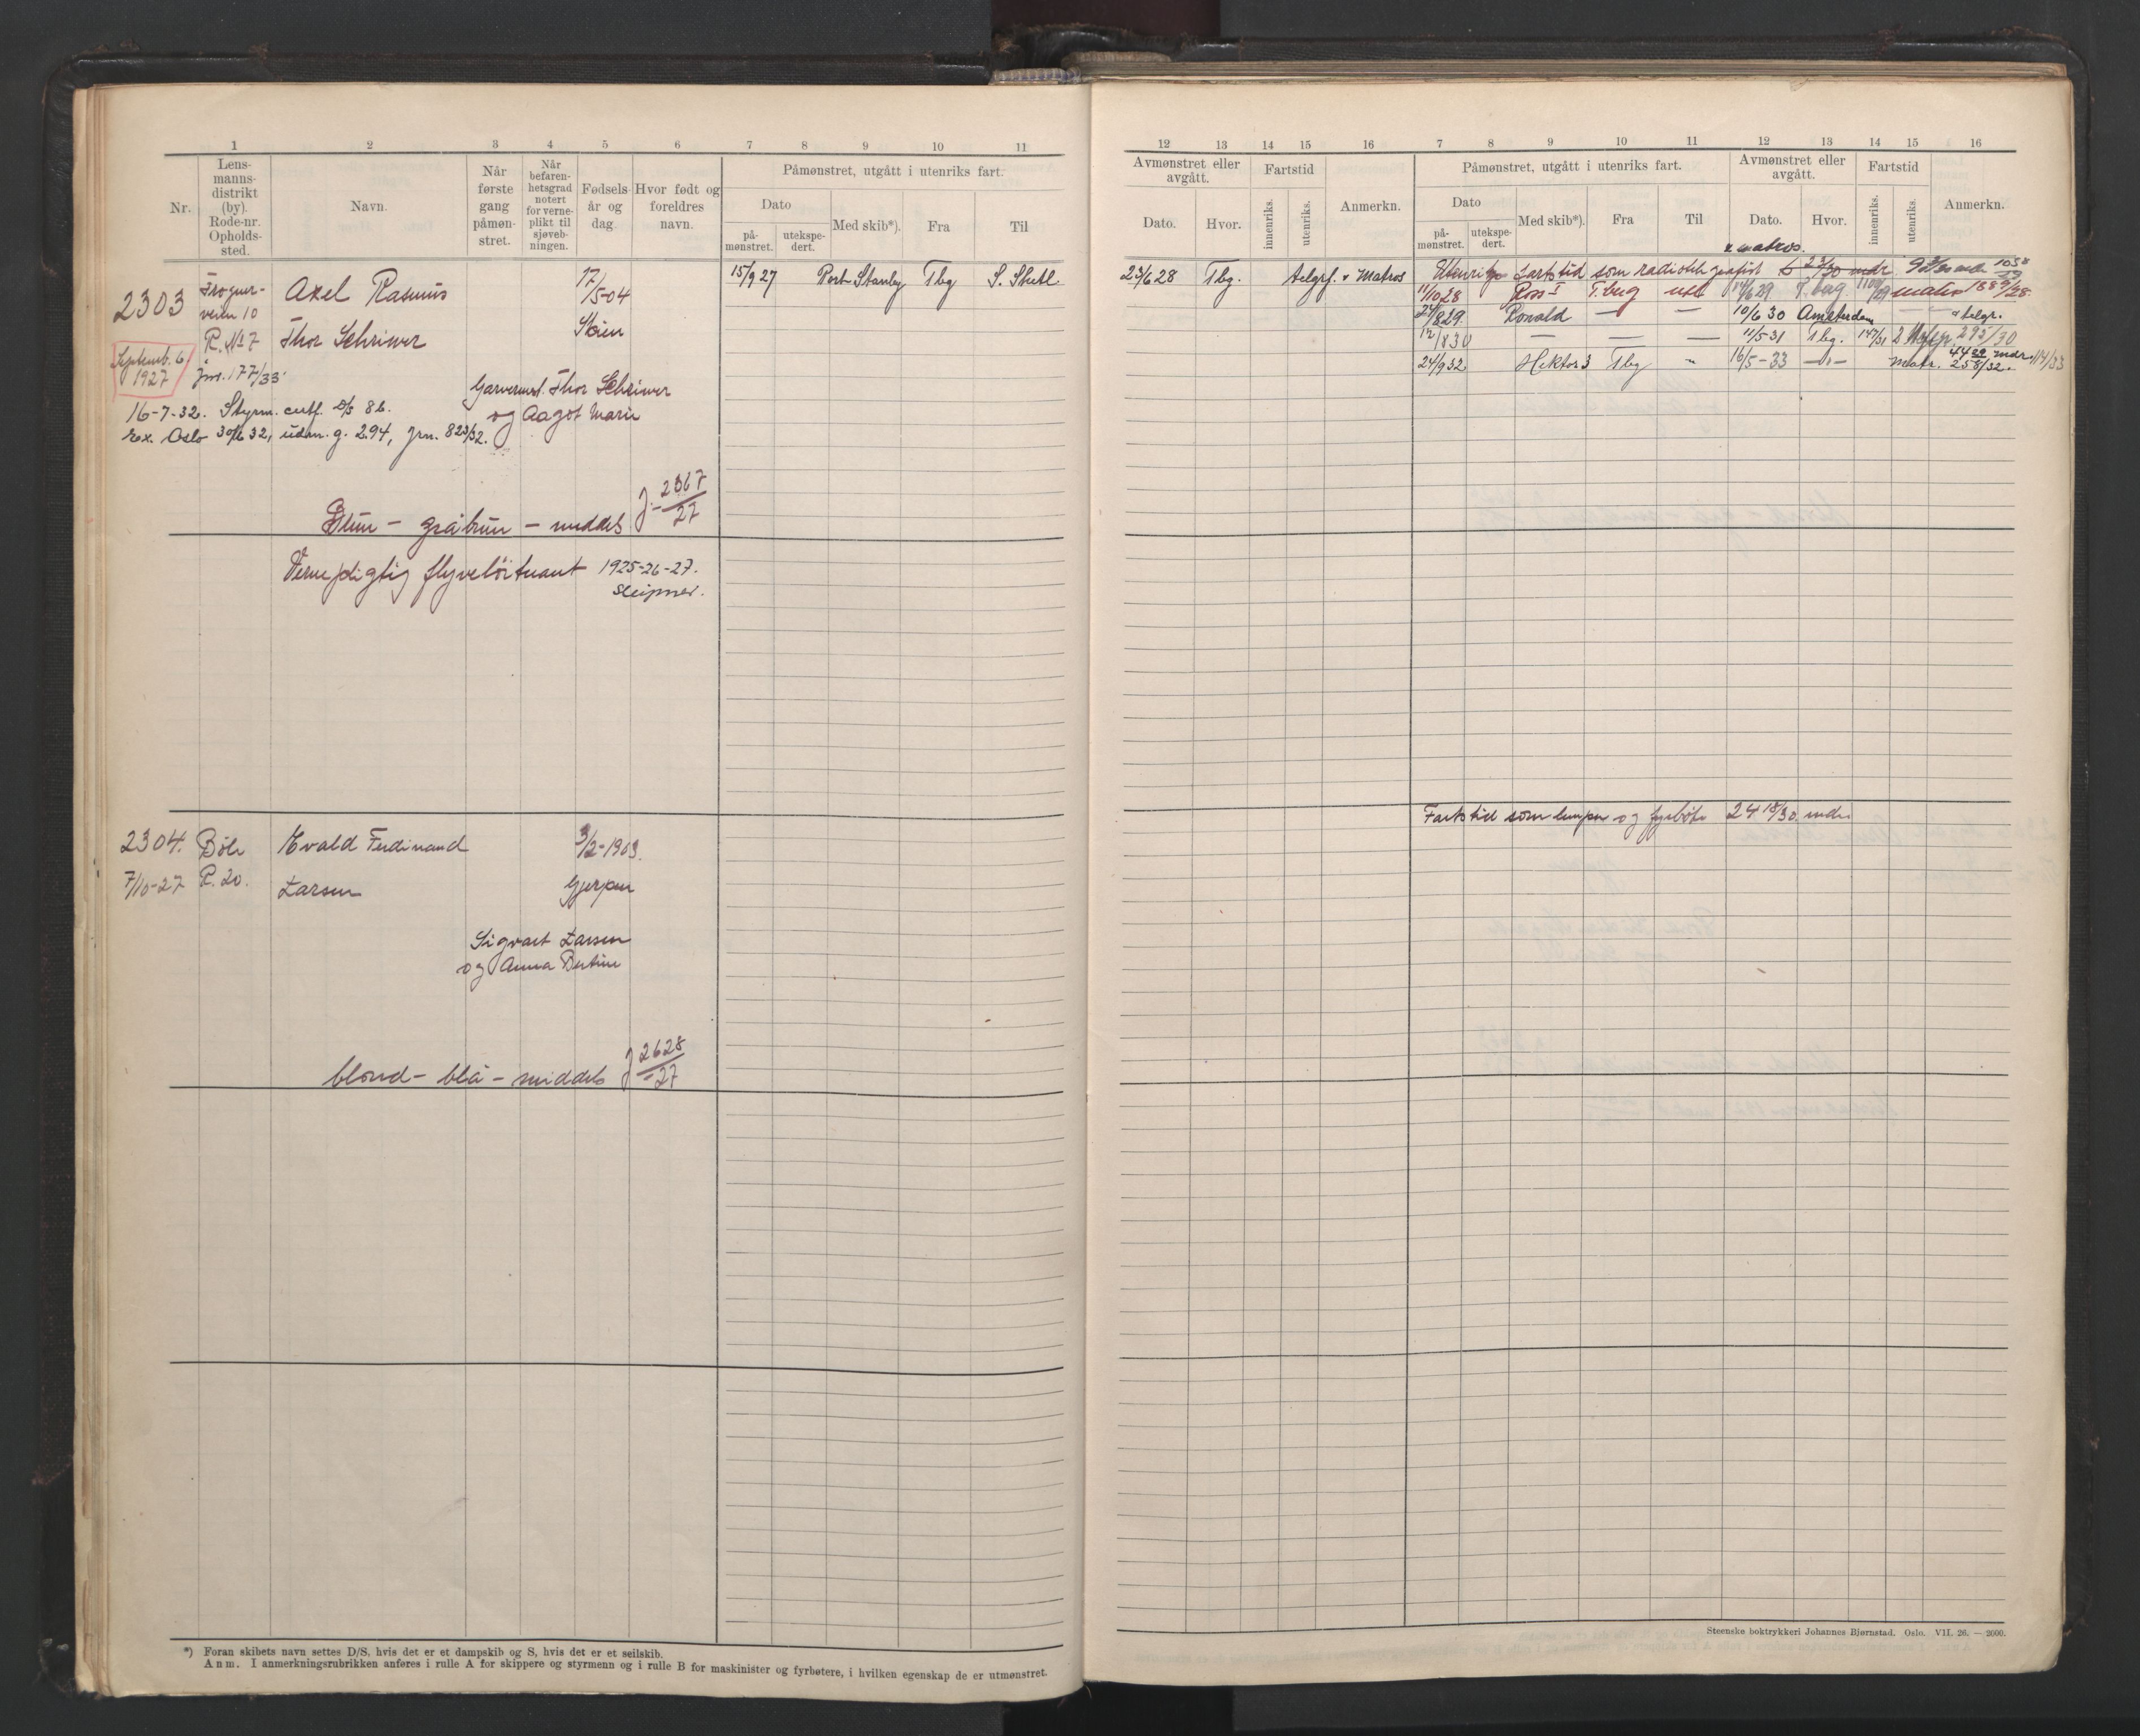 1 2 3 4 5 6 7 8 9 10 11
Nr.
Lens-
manns-
distrikt
(by).
Rode-nr.
Opholds-
sted.
Navn.
Når
første
gang
påmøn-
stret.
Når
befaren-
hetsgrad
notert
for verne-
plikt til
sjøveb-
ningen.
Fødsels-
år og
dag.
Hvor født og
foreldres
navn.
Påmønstret, utgått i utenriks fart.
Dato
på-
mønstret.
utekspe-
dert.
Med skib*).
Fra
Til
2303
Frogner-
veien 10
R. No 7
Axel Rasmus
Thor Schriwer
17/5-04
Skien
15/9 27 Port Stanley Tbg S. Shetl.
Septemb. 6
1927
Jnr. 177/33
Garvermst. Thor Schriwer
og Aagot Marie
16-7-32. Styrm. certf. D/S 86.
Ex. Oslo 30/6 32, udm. g. 2.94, Jrn. 823/32.
Brun - gråbrun - middels J. 2367/27
Vernepligtig flyveløitnant 1925-26-27.
Sleipner.
2304. Bøle Evald Ferdinand 3/2-1903.
7/10-27 R. 20. Larsen Gjerpen
Sigvart Larsen
og Anna Bertine
blond - blå - middels J 2628/27
*) Foran skibets navn settes D/S, hvis det er et dampskib og S, hvis det er et seilskib.
Anm. I anmerkningsrubrikken anføres i rulle A for skippere og styrmenn og i rulle B for maskinister og fyrbøtere, i hvilken egenskap de er utmønstret.
12 13 14 15 16 7 8 9 10 11 12 13 14 15 16
Avmønstret eller
avgått.
Dato.
Hvor.
Fartstid
innenriks.
utenriks.
Anmerkn.
Påmønstret, utgått i utenriks fart.
Dato
på-
mønstret.
utekspe-
dert.
Med skib*).
Fra
Til
Avmønstret eller
avgått.
Dato.
Hvor.
Fartstid
innenriks.
utenriks.
Anmerkn.
matros.
23/6 28 Tbg. telgrf. & Matros Utenriks fartstid som radiotelegrafist
11/10 28 Ross I T.berg 14/6 29 T.berg matros
24/8 29. Ronald — — 10/6 30 Amsterdam — — telgr.
12/8 30 — — — 11/5-31 Tbg. 147/31 295/30
24/9 32. Hektor 3 Tbg " 16/5-33 —"— Matr. 258/32. 114/33
Fartstid som lemper og fyrbøter 24 18/30 mdr.
Steenske boktrykkeri Johannes Bjørnstad. Oslo. VII. 26. — 2000.